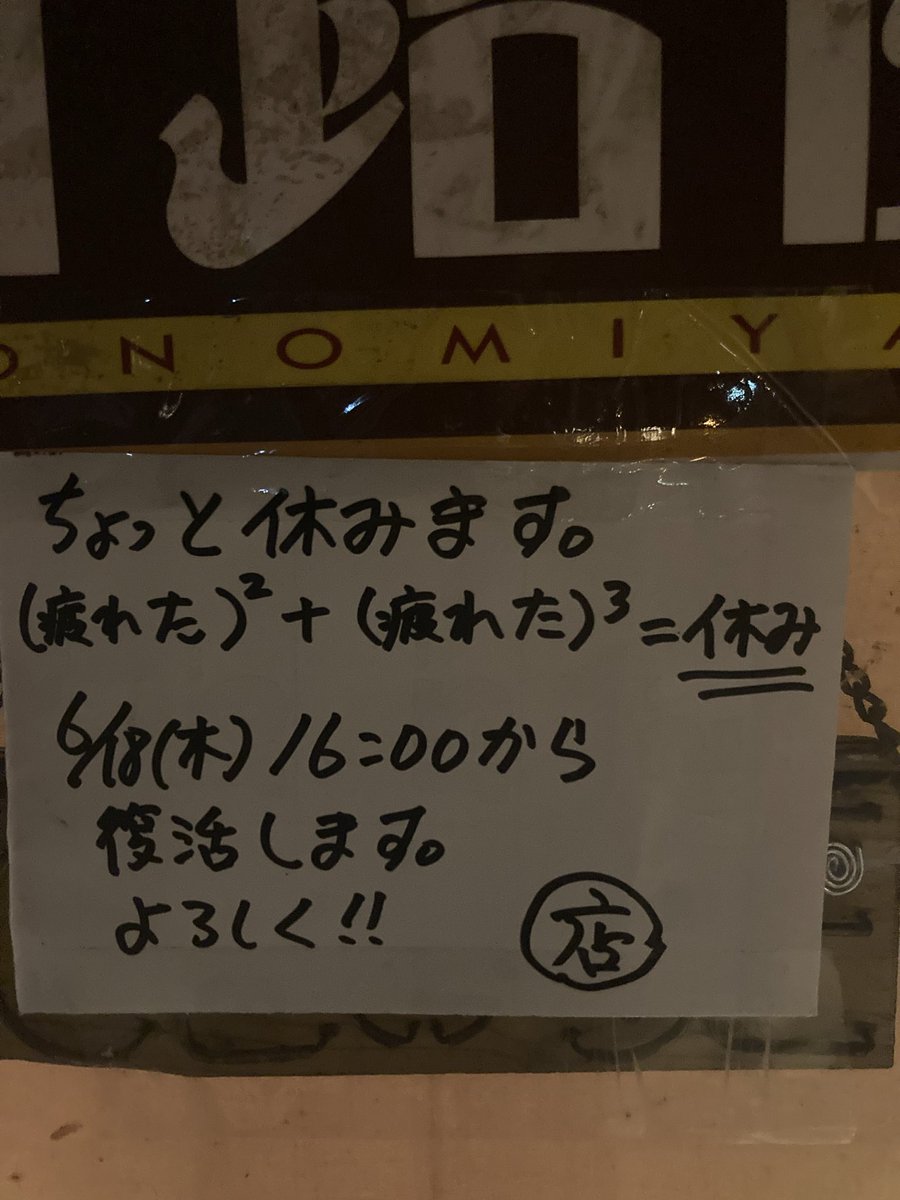 ONOMIYA
ちょっと休みます。
(疲れた)² + (疲れた)³ = 休み
6/18(木) 16:00から
復活します。
よろしく!!
店